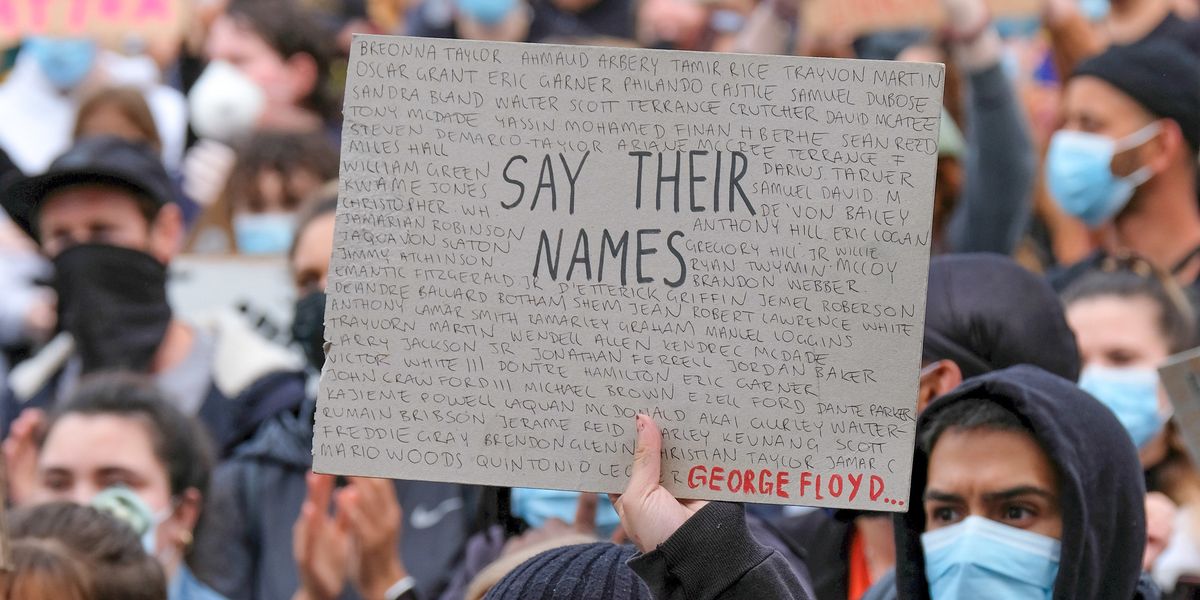 BREONNA TAYLOR AHMAUD ARBERY TAMIR RICE TRAYVON MARTIN
OSCAR GRANT ERIC GARNER PHILANDO CASTILE SAMUEL DUBOSE
SANDRA BLAND WALTER SCOTT TERRANCE CRUTCHER DAVID MCATEE
TONY MCDADE YASSIN MOHAMED FINAN H BERHE SEAN REED
STEVEN DEMARCO-TAYLOR ARIANE MCCREE TERRANCE F
MILES HALL
WILLIAM GREEN DARIUS TARVER
KWAME JONES SAMUEL DAVID M
CHRISTOPHER WH DE'VON BAILEY
SAY THEIR
NAMES
JAMARIAN ROBINSON ANTHONY HILL ERIC LOGAN
JAQUAVON SLATON GREGORY HILL JR WILLIE
JIMMY ATCHINSON RYAN TWYMIN MCCOY
EMANTIC FITZGERALD JR D'ETTERICK GRIFFIN JEMEL ROBERSON
BRANDON WEBBER
DEANDRE BALLARD BOTHAM SHEM JEAN ROBERT LAWRENCE WHITE
ANTHONY LAMAR SMITH RAMARLEY GRAHAM MANUEL LOGGINS
TRAYVORN MARTIN WENDELL ALLEN KENDREC MCDADE
LARRY JACKSON JR JONATHAN FERRELL JORDAN BAKER
VICTOR WHITE III DONTRE HAMILTON ERIC GARNER
JOHN CRAWFORD III MICHAEL BROWN EZELL FORD DANTE PARKER
KAJIEME POWELL LAQUAN MCDONALD AKAI GURLEY WALTER
RUMAIN BRIBSON JERAME REID SCOTT
FREDDIE GRAY BRENDON GLENN TAYLOR JAMAR C
MARIO WOODS
GEORGE FLOYD...